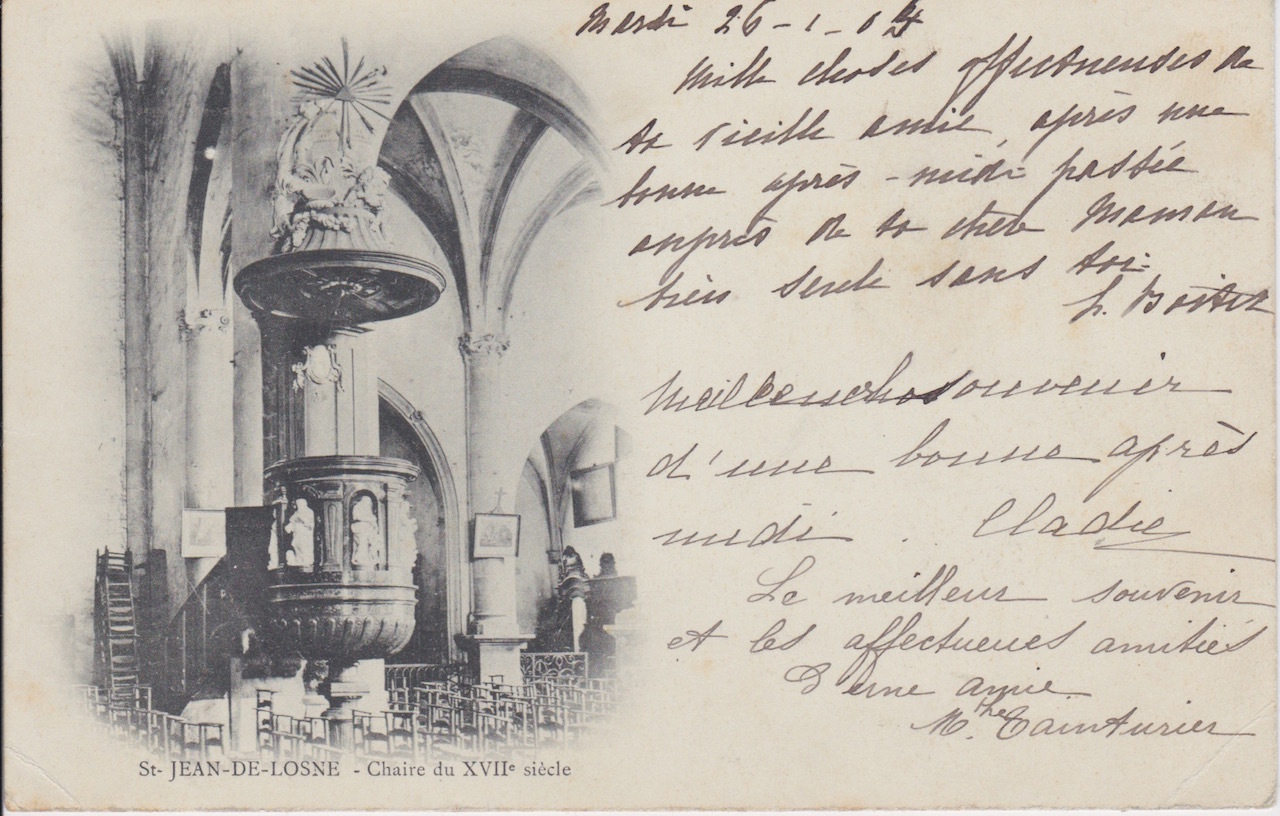 Mardi 26-1-04
Mille choses affectueuses de
ta vieille amie, après une
bonne après-midi passée
auprès de ta chère Maman
bien seule sans toi.
souvenir
d'une bonne après
midi. Cladie
Le meilleur souvenir
et les affectueues amitiés
d'une amie
M.the Tainturier
St-JEAN-DE-LOSNE - Chaire du XVIIe siècle